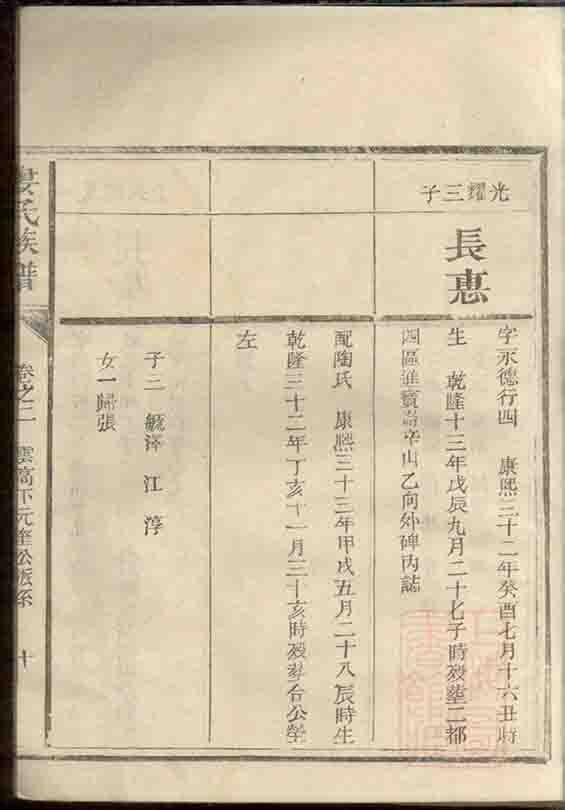 光耀三子
長惠
字永德行四 康熙三十二年癸酉七月十六丑時
生 乾隆十三年戊辰九月二十七子時殁塟二都
四區進寶壽辛山乙向外碑內誌
配陶氏 康熙三十三年甲戌五月二十八辰時生
乾隆三十二年丁亥十一月三十亥時殁塟台公塋
左
子三 毓澤 江 淳
女一歸張
婁氏族譜
卷之二 雲高下元 公派系 十